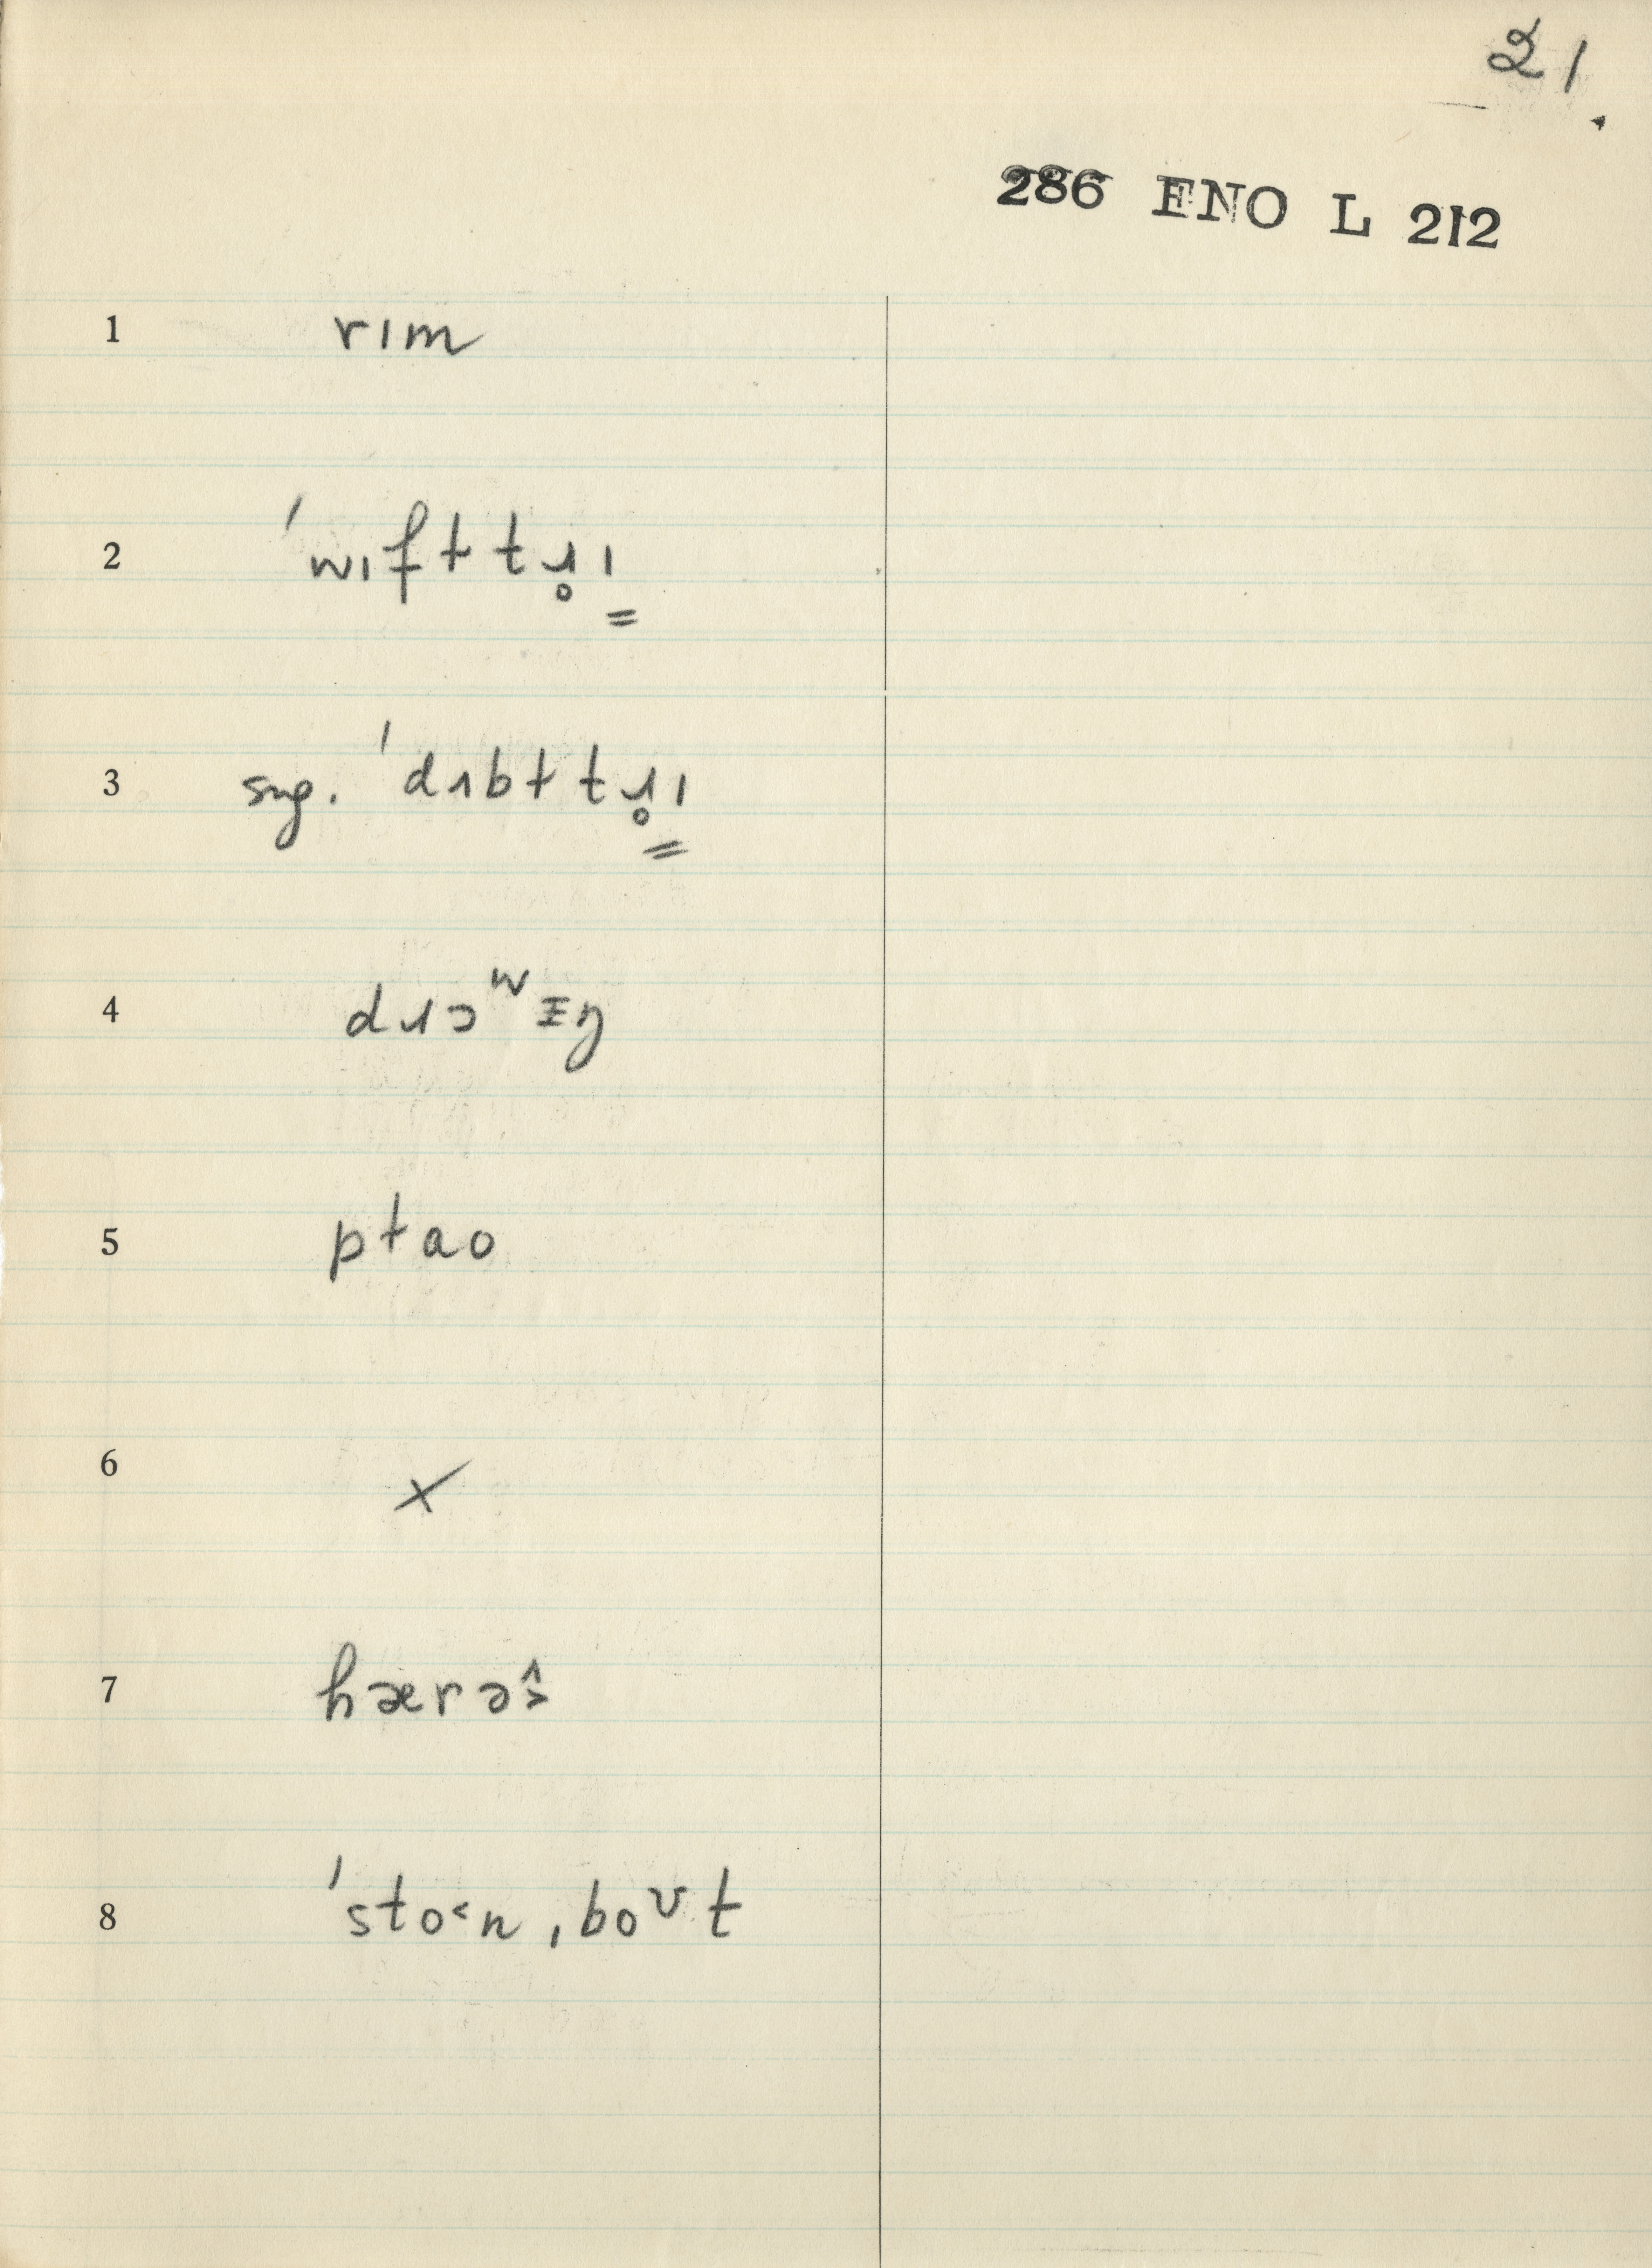 21.
286 ENO L 212
1 rɪm
2 ˈwɪfɫtɹ̥ɪ
3 sug. ˈdʌbɫtɹ̥ɪ
4 dɹɔʷɪŋ
5 pɫao
6 ×
7 hærəʂ̂
8 ˈsto˂n ˌboᶹt